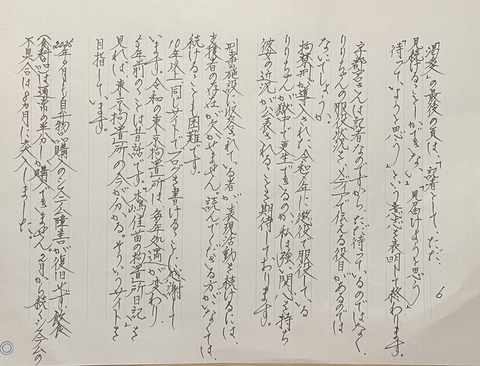 6
『渇愛』の最後の頁は、「記者として、ただ、
見続けることしかできない」「見届けようと思う」
「待っていようと思う」という意志を表明して終わります。
宇都宮さんは記者なのですから、ただ待っているのではなく、
りりちゃんの服役状況を、メディアで伝える役目があるのでは
ないでしょうか。
拘禁刑が導入された令和7年に懲役で服役している
りりちゃんが獄中で更生できるのか、私は強い関心を持ち
彼女の近況が公表されることを期待しております。
刑事施設に収容されている者が表現活動を続けるには、
支援者の存在が欠かせません。読んでくださる方がいなくては、
続けることも困難です。
10年以上同じサイトでブログを書けることに感謝して
います。令和の東京拘置所は、毎年処遇が変わり、
5年前のことは昔話です。「木嶋佳苗の拘置所日記」を
見れば、東京拘置所の今が分かる。そういうサイトを
目指しています。
2025年9月も自弁物品購入のシステム障害が復旧せず、飲
食料品は通常の半分しか購入できません。2月から続くシステムの
不具合は8カ月目に突入しました。